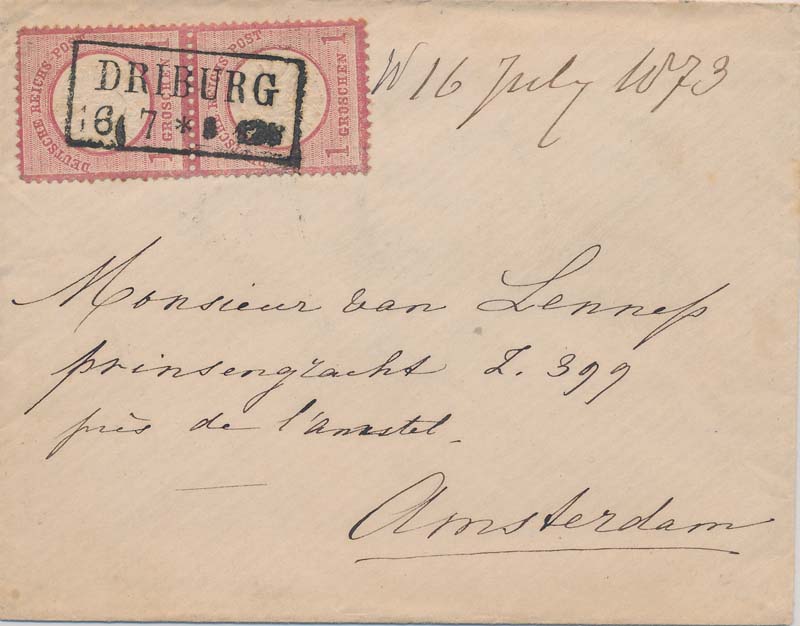 DEUTSCHE REICHS POST
1 GROSCHEN 1
DEUTSCHE REICHS POST
1 GROSCHEN 1
DRIBURG
16 7 *
16 July 1873
Monsieur van Lennep
prinsengracht Z. 399
près de l'amstel.
Amsterdam